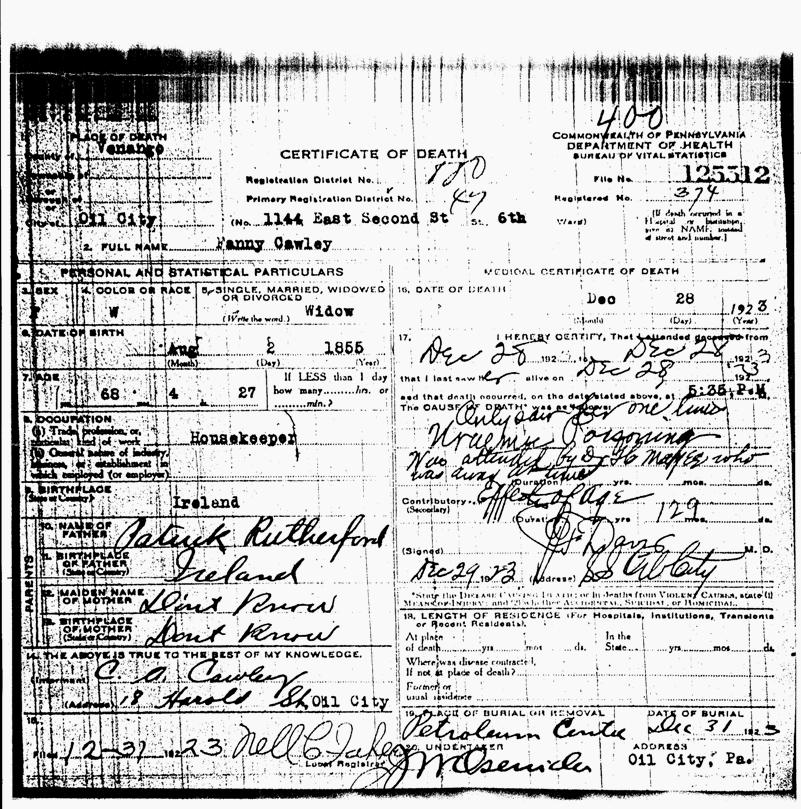 400
COMMONWEALTH OF PENNSYLVANIA
DEPARTMENT OF HEALTH
BUREAU OF VITAL STATISTICS
File No. 125312
Registered No. 374
CERTIFICATE OF DEATH
Registration District No. 880
Primary Registration District No. 47
PLACE OF DEATH
County of Venango
City of Oil City
(No. 1144 East Second St St., 6th Ward)
[If death occurred in a
Hospital or Institution,
give its NAME instead
of street and number.]
2. FULL NAME Fanny Cawley
PERSONAL AND STATISTICAL PARTICULARS
3. SEX
F
4. COLOR OR RACE
W
5. SINGLE, MARRIED, WIDOWED
OR DIVORCED
(Write the word.) Widow
6. DATE OF BIRTH
Aug 2 1855
(Month) (Day) (Year)
7. AGE
68 4 27
If LESS than 1 day
how many hrs. or
min.?
8. OCCUPATION
(a) Trade, profession, or
particular kind of work
(b) General nature of industry,
business, or establishment in
which employed (or employer)
Housekeeper
9. BIRTHPLACE
(State or Country) Ireland
PARENTS
10. NAME OF
FATHER Patrick Rutherford
11. BIRTHPLACE
OF FATHER
(State or Country) Ireland
12. MAIDEN NAME
OF MOTHER Dont Know
13. BIRTHPLACE
OF MOTHER
(State or Country) Dont Know
14. THE ABOVE IS TRUE TO THE BEST OF MY KNOWLEDGE.
(Informant) C. A. Cawley
(Address) 18 Harold St, Oil City
15.
Filed 12-31 1923
Local Registrar
MEDICAL CERTIFICATE OF DEATH
16. DATE OF DEATH
Dec 28 1923
(Month) (Day) (Year)
17. I HEREBY CERTIFY, That I attended deceased from
Dec 28 192 3, to Dec 28 192 3
that I last saw her alive on Dec 28 192 3
and that death occurred, on the date stated above, at 5:35 P.M
The CAUSE OF DEATH was as follows:
Only saw her one time
Uraemic Poisoning
Was attended by Dr who
was away
(Duration) yrs. mos. ds.
Contributory Effects of age
(Secondary)
(Duration) yrs. mos. ds.
(Signed) M. D.
Dec 29 1923 (Address) Oil City
*State the DISEASE CAUSING DEATH; or in deaths from VIOLENT CAUSES, state (1)
MEANS OF INJURY; and (2) whether ACCIDENTAL, SUICIDAL, or HOMICIDAL.
18. LENGTH OF RESIDENCE (For Hospitals, Institutions, Transients
or Recent Residents).
At place
of death yrs. mos. ds.
In the
State yrs. mos. ds.
Where was disease contracted,
If not at place of death?
Former or
usual residence
19. PLACE OF BURIAL OR REMOVAL
Petroleum Centre
DATE OF BURIAL
Dec 31 1923
20. UNDERTAKER
ADDRESS
Oil City, Pa.